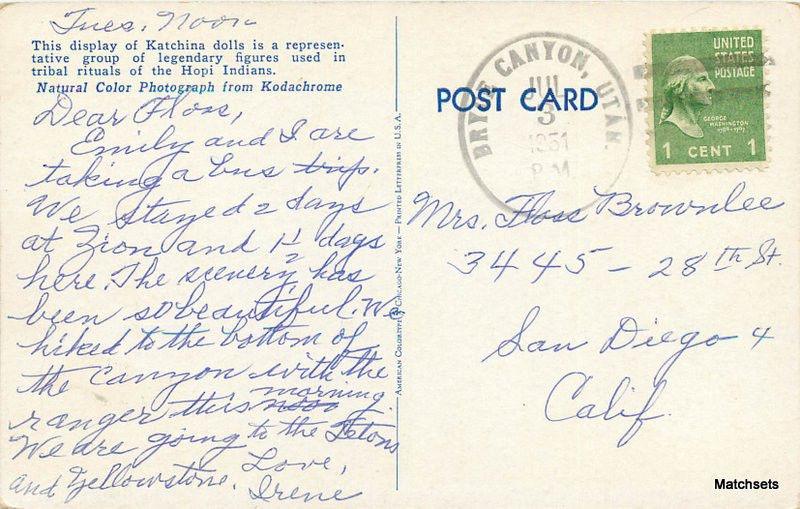 Tues. Noon
This display of Katchina dolls is a represen-
tative group of legendary figures used in
tribal rituals of the Hopi Indians.
Natural Color Photograph from Kodachrome
Dear Floss,
Emily and I are
taking a bus trip.
We stayed 2 days
at Zion and 1½ days
here. The scenery has
been so beautiful. We
hiked to the bottom of
the canyon with the
ranger this noon morning.
We are going to the Tetons
and Yellowstone. Love,
Irene
AMERICAN COLORTYPE CO., CHICAGO-NEW YORK — PRINTED LETTERPRESS IN U.S.A.
POST CARD
BRYCE CANYON, UTAH.
JUL
3
1951
PM
UNITED
STATES
POSTAGE
GEORGE
WASHINGTON
1 CENT 1
Mrs. Floss Brownlee
3445 - 28th St.
San Diego 4
Calif.
Matchsets